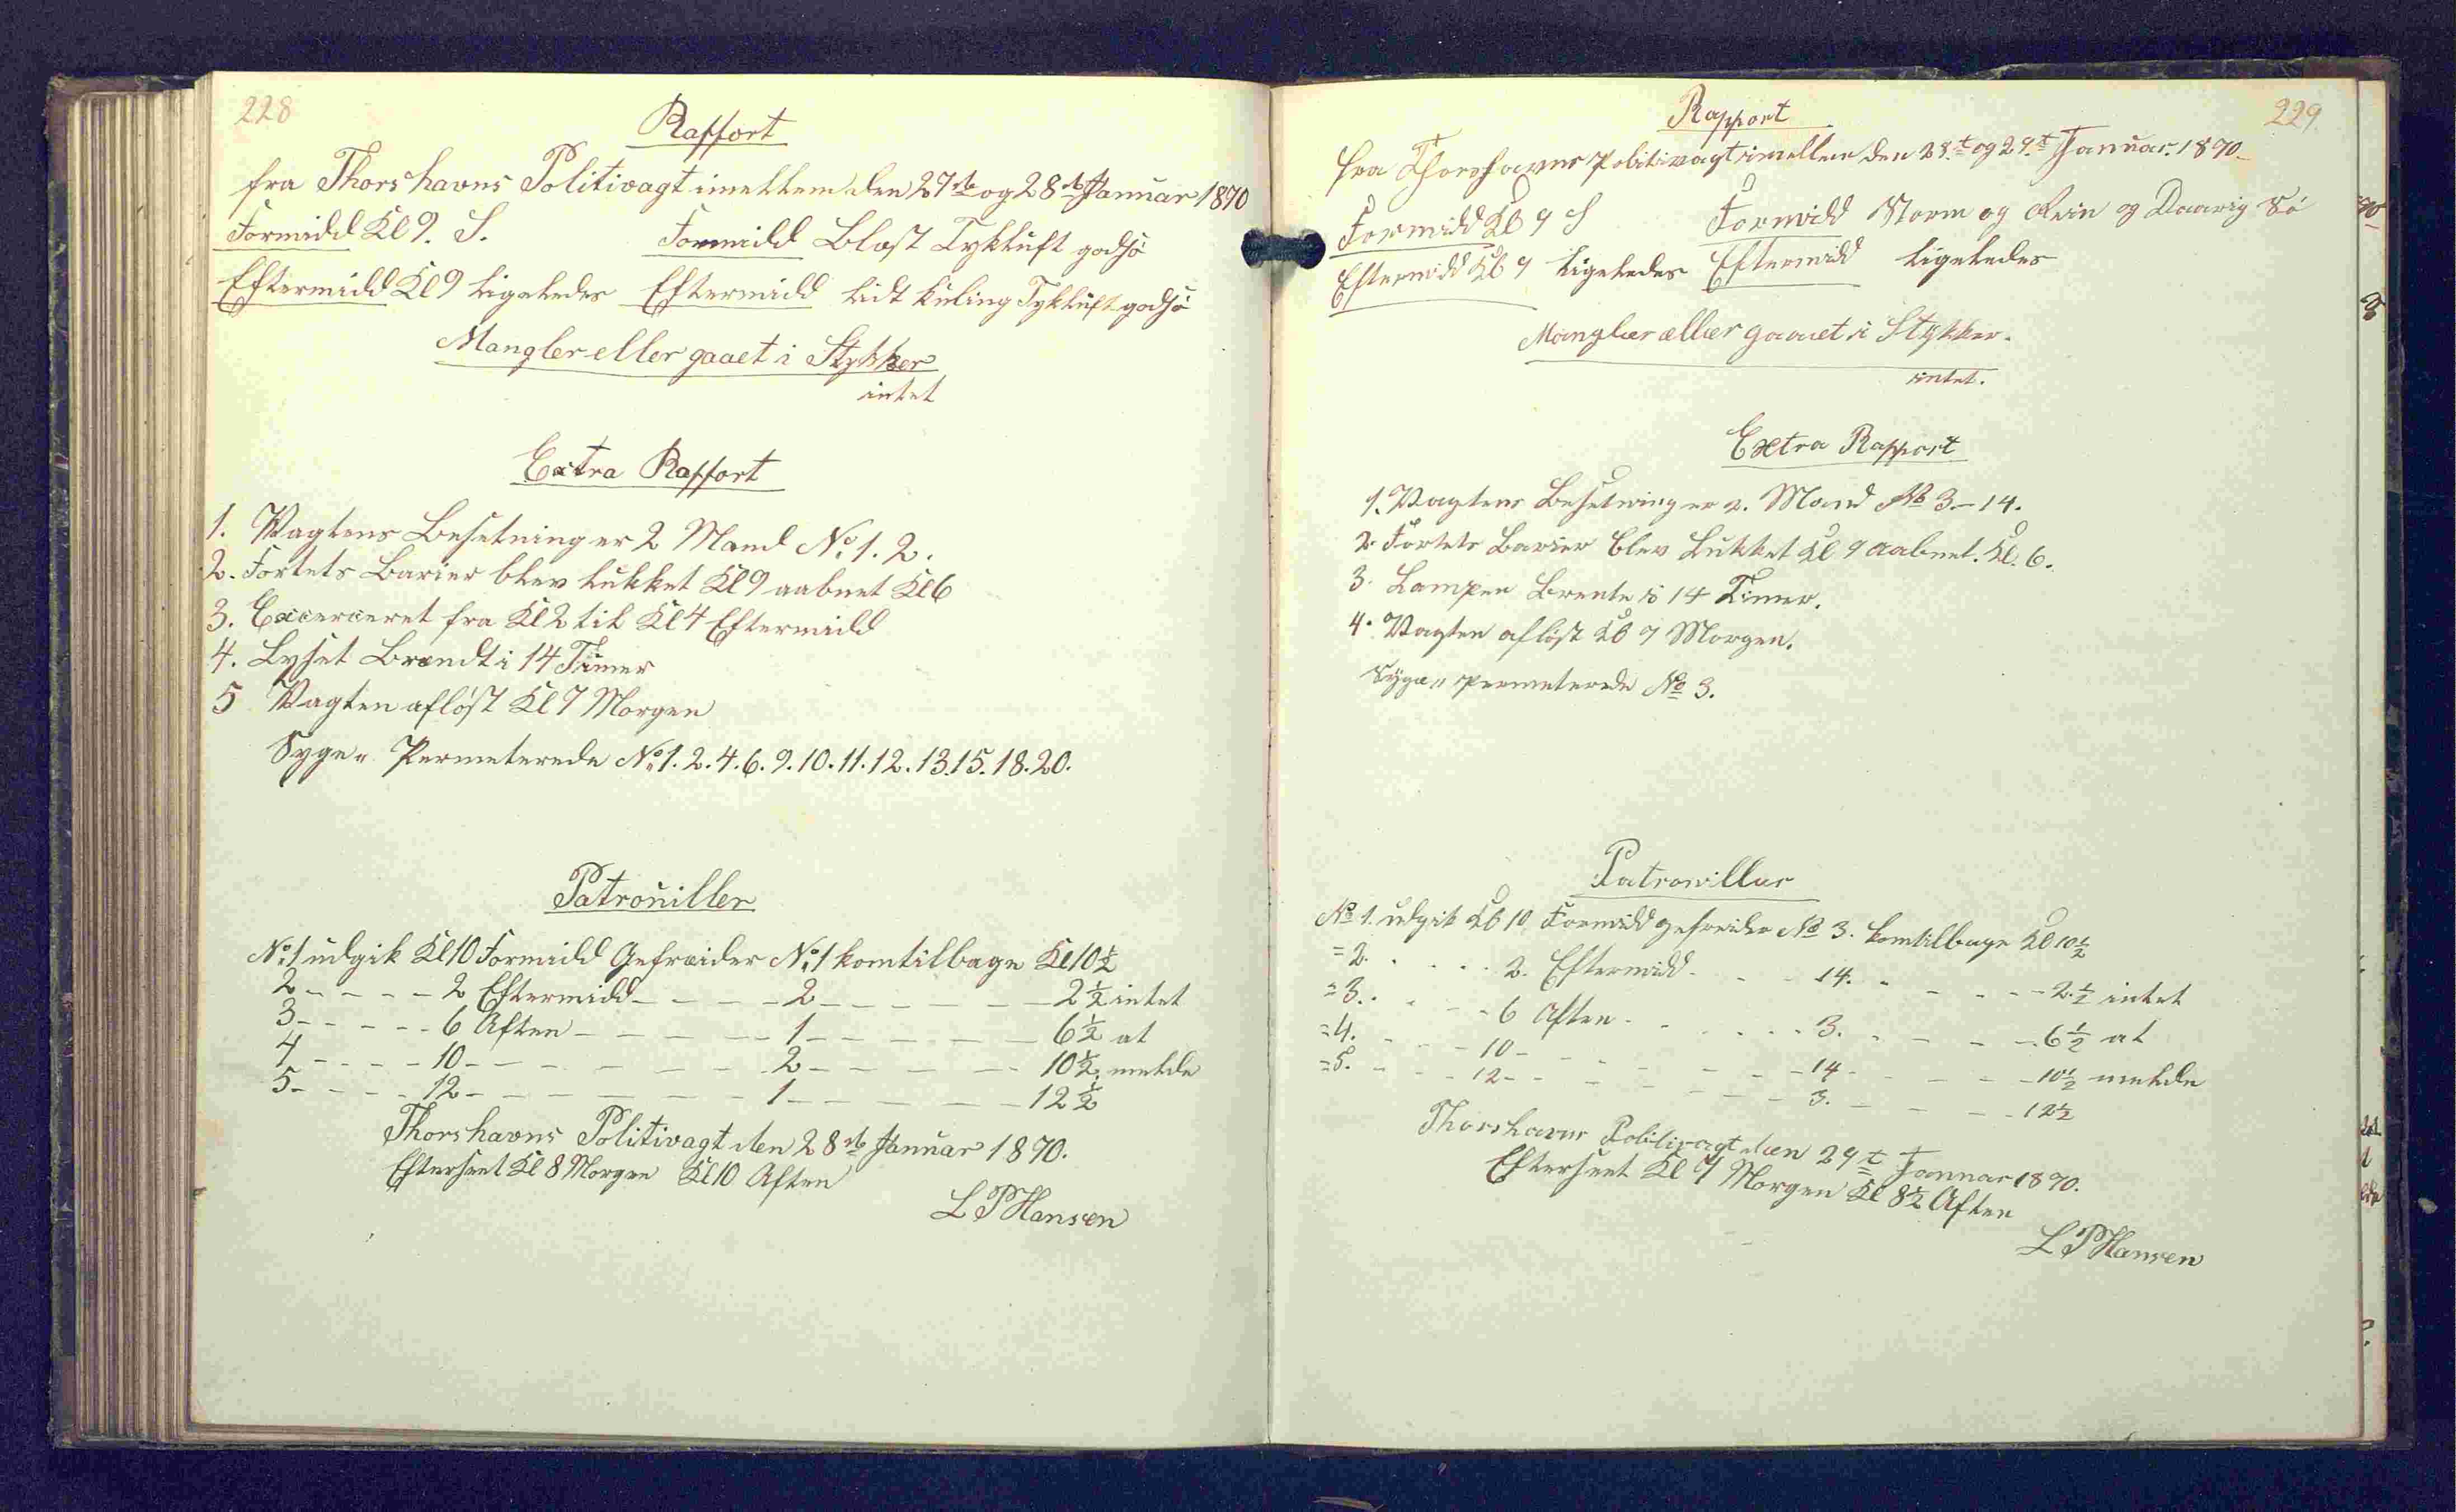 228
Rapport
fra Thorshavns Politivagt imellem den 27de og 28de Januar 1870
Formidd Kl 9. S. Formidd Blæst Tykluft god Sø
Eftermidd Kl 9 ligeledes Eftermidd lidt Kuling Tykluft god Sø
Mangler eller gaaet i Stykker
intet
Extra Rapport
1. Vagtens Besetning er 2 Mand No 1. 2.
2. Fortets Barier blev lukket Kl 9 aabnet Kl 6
3. Excerceret fra Kl 2 til Kl 4 Eftermidd
4. Lyset Brændt i 14 Timer
5 Vagten afløst Kl 9 Morgen
Syge " Permeterede No 1. 2. 4. 6. 9. 10. 11. 12. 13. 15. 18. 20.
Patrouiller
No 1 udgik Kl 10 Formidd Gefreider No 1 kom tilbage Kl 10 1/2
2 - - - - 2 Eftermidd - - - - 2 - - - - - - 2 1/2 intet
3 - - - - - 6 Aften - - - - - 1 - - - - - - 6 1/2 at
4 - - - - 10 - - - - - - - 2 - - - - - 10 1/2 melde
5 - - - - 12 - - - - - - - 1 - - - - - 12 1/2
Thorshavns Politivagt den 28de Januar 1870.
Efterseet Kl 8 Morgen Kl 10 Aften
L P Hansen
229.
Rapport
fra Thorshavns Politivagt imellem den 28.t og 29.t Januar. 1870.
Formidd Kl 9 S Formidd Storm og Rein og Daarig Sø
Eftermidd Kl 9 ligeledes Eftermidd ligeledes
Mangler eller gaaet i Stykker.
intet.
Extra Rapport
1. Vagtens Besetning er 2. Mand No 3 - 14.
2. Fortets Barier blev Lukket Kl 9 aabnet. Kl. 6.
3. Lampen Brente i 14 Timer.
4. Vagten afløst Kl 9 Morgen.
Syge " permeterede No 3.
Patrouiller
No 1. udgik Kl 10 Formidd gefreider No 3. kom tilbage Kl 10 1/2
= 2. . . . . 2. Eftermidd. - - 14. - - - - 2 1/2 intet
= 3. . . - - 6 Aften - . . . . 3. - - - - 6 1/2 at
= 4. - - - 10 - - - - - - 14 - - - - 10 1/2 melde
= 5. - - - 12 - - - - - - 3. - - - - 12 1/2
Thorshavns Politivagt den 29t Januar 1870.
Efterseet Kl 9 Morgen Kl 8 1/2 Aften
L P Hansen